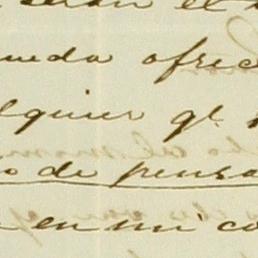 serán el
ueda ofrec
lquier ql.
o de pensa
en mi co